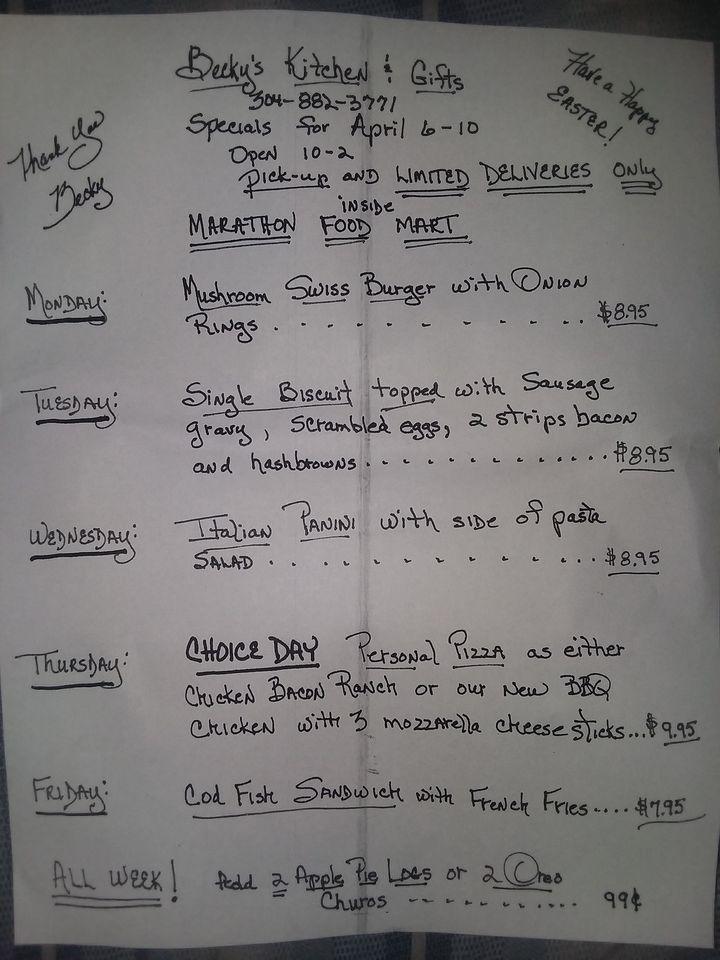 Becky's Kitchen & Gifts
304-882-3771
Have a Happy
EASTER!
Thank You
Becky
Specials for April 6-10
Open 10-2
Pick-up AND LIMITED DELIVERIES ONLY
INSIDE
MARATHON FOOD MART
MONDAY: Mushroom Swiss Burger with ONION
RINGS . . . . . . . . . . $8.95
TUESDAY: Single Biscuit topped with Sausage
gravy, scrambled eggs, 2 strips bacon
and hashbrowns . . . . . . . . . . . . . $8.95
WEDNESDAY: Italian PANINI with side of pasta
SALAD . . . . . . . . . . . . . $8.95
THURSDAY: CHOICE DAY Personal PIZZA as either
Chicken Bacon Ranch or our New BBQ
Chicken with 3 mozzarella cheese sticks...$9.95
FRIDAY: Cod Fish SANDWich with French Fries....$7.95
ALL WEEK! Add 2 Apple Pie Logs or 2 Oreo
Churos . . . . . . . . . . 99¢